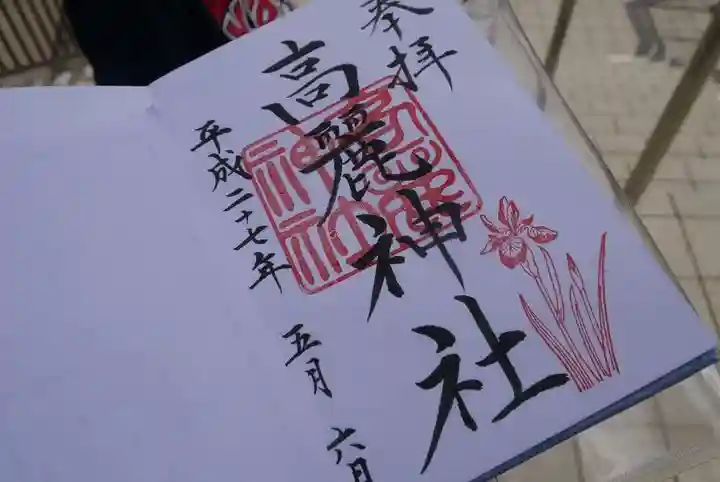 奉拝
高麗神社
平成二十七年 五月 六日